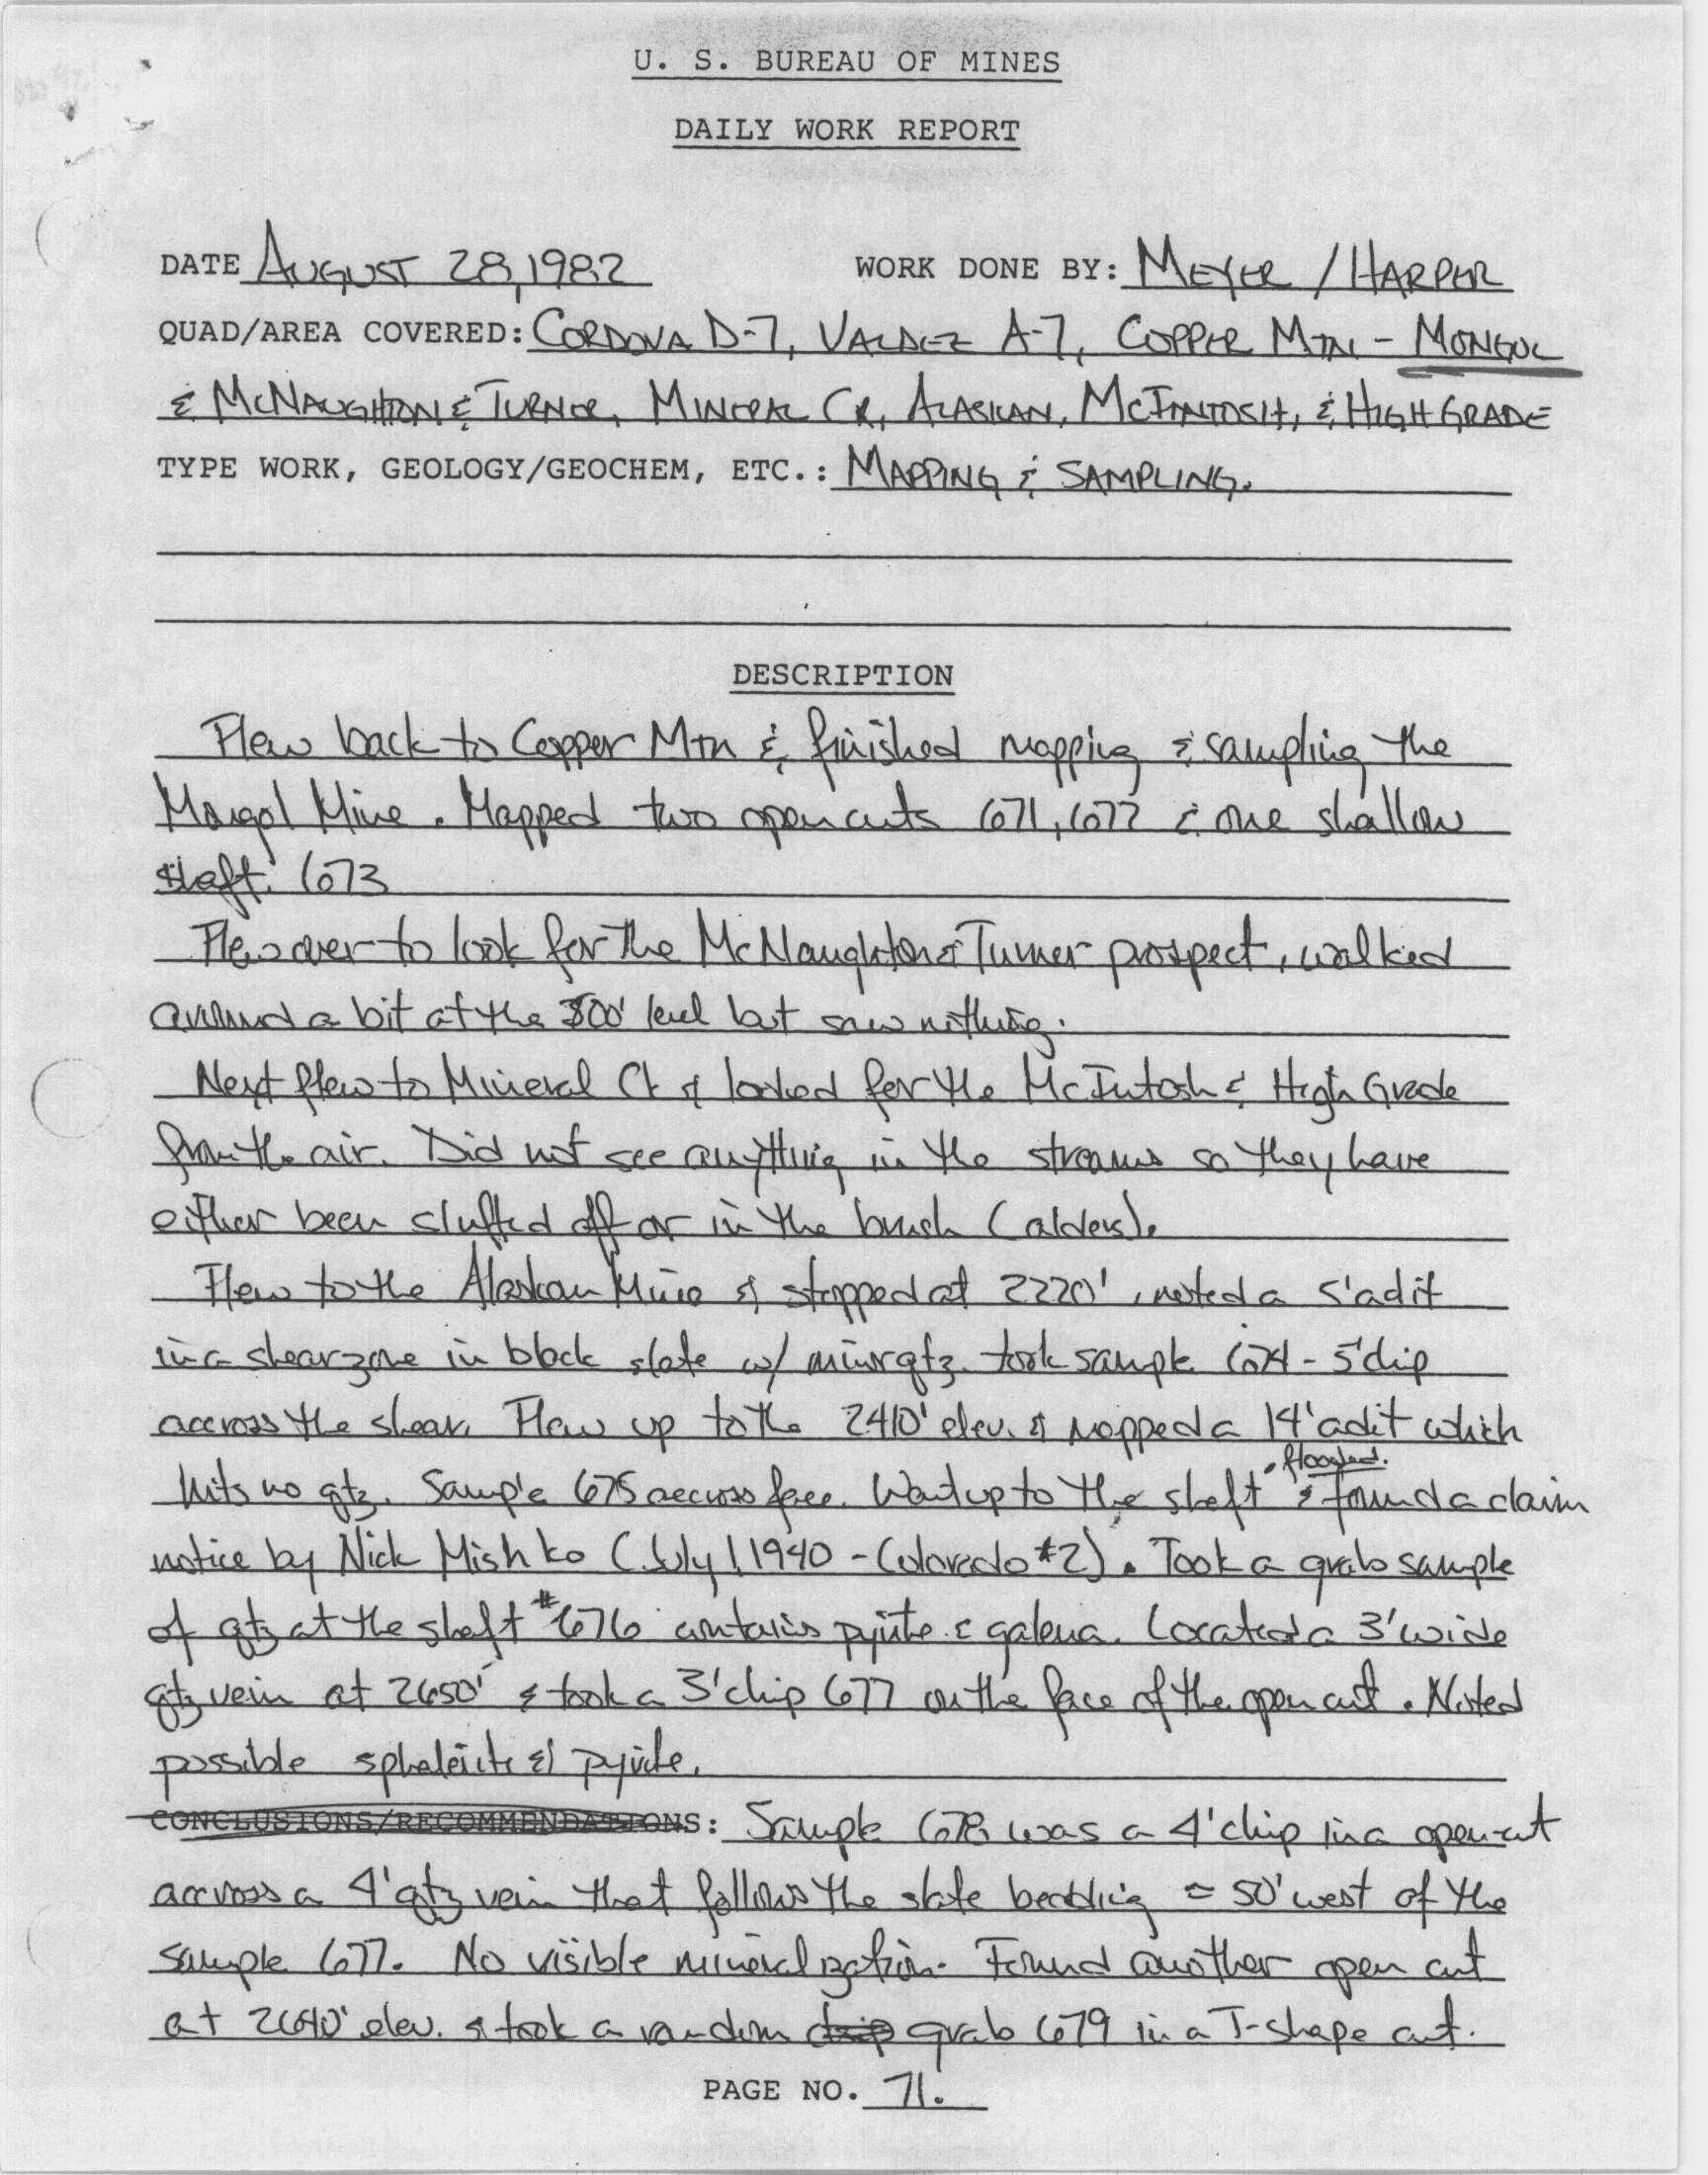 U. S. BUREAU OF MINES
DAILY WORK REPORT
DATE AUGUST 28, 1982 WORK DONE BY: MEYER / HARPER
QUAD/AREA COVERED: CORDOVA D-7, VALDEZ A-7, COPPER MTN - MONGOL
& MCNAUGHTON & TURNER, MINERAL CR, ALASKAN, MCINTOSH, & HIGH GRADE
TYPE WORK, GEOLOGY/GEOCHEM, ETC.: MAPPING & SAMPLING.
DESCRIPTION
Flew back to Copper Mtn & finished mapping & sampling the
Mongol Mine. Mapped two open cuts 671, 672 & one shallow
shaft. 673
Flew over to look for the McNaughton & Turner prospect, walked
around a bit at the 800' level but saw nothing.
Next flew to Mineral Ck & looked for the McIntosh & High Grade
from the air. Did not see anything in the streams so they have
either been sluffed off or in the brush (alders).
Flew to the Alaskan Mine & stopped at 2220', noted a 5' adit
in a shear zone in black slate w/ minor qtz. took sample 674 - 5' chip
accross the shear. Flew up to the 2410' elev. & mapped a 14' adit which
hits no qtz. Sample 675 accross face. Went up to the shaft • flooded. & found a claim
notice by Nick Mishko (July 1, 1940 - Colorado #2). Took a grab sample
of qtz at the shaft #676 contains pyrite & galena. Located a 3' wide
qtz vein at 2650' & took a 3' chip 677 on the face of the open cut. Noted
possible sphalerite & pyrite.
CONCLUSIONS/RECOMMENDATIONS: Sample 678 was a 4' chip in a open cut
accross a 4' qtz vein that follows the slate bedding ≈ 50' west of the
sample 677. No visible mineralization. Found another open cut
at 2640' elev. & took a random chip grab 679 in a T-shape cut.
PAGE NO. 71.